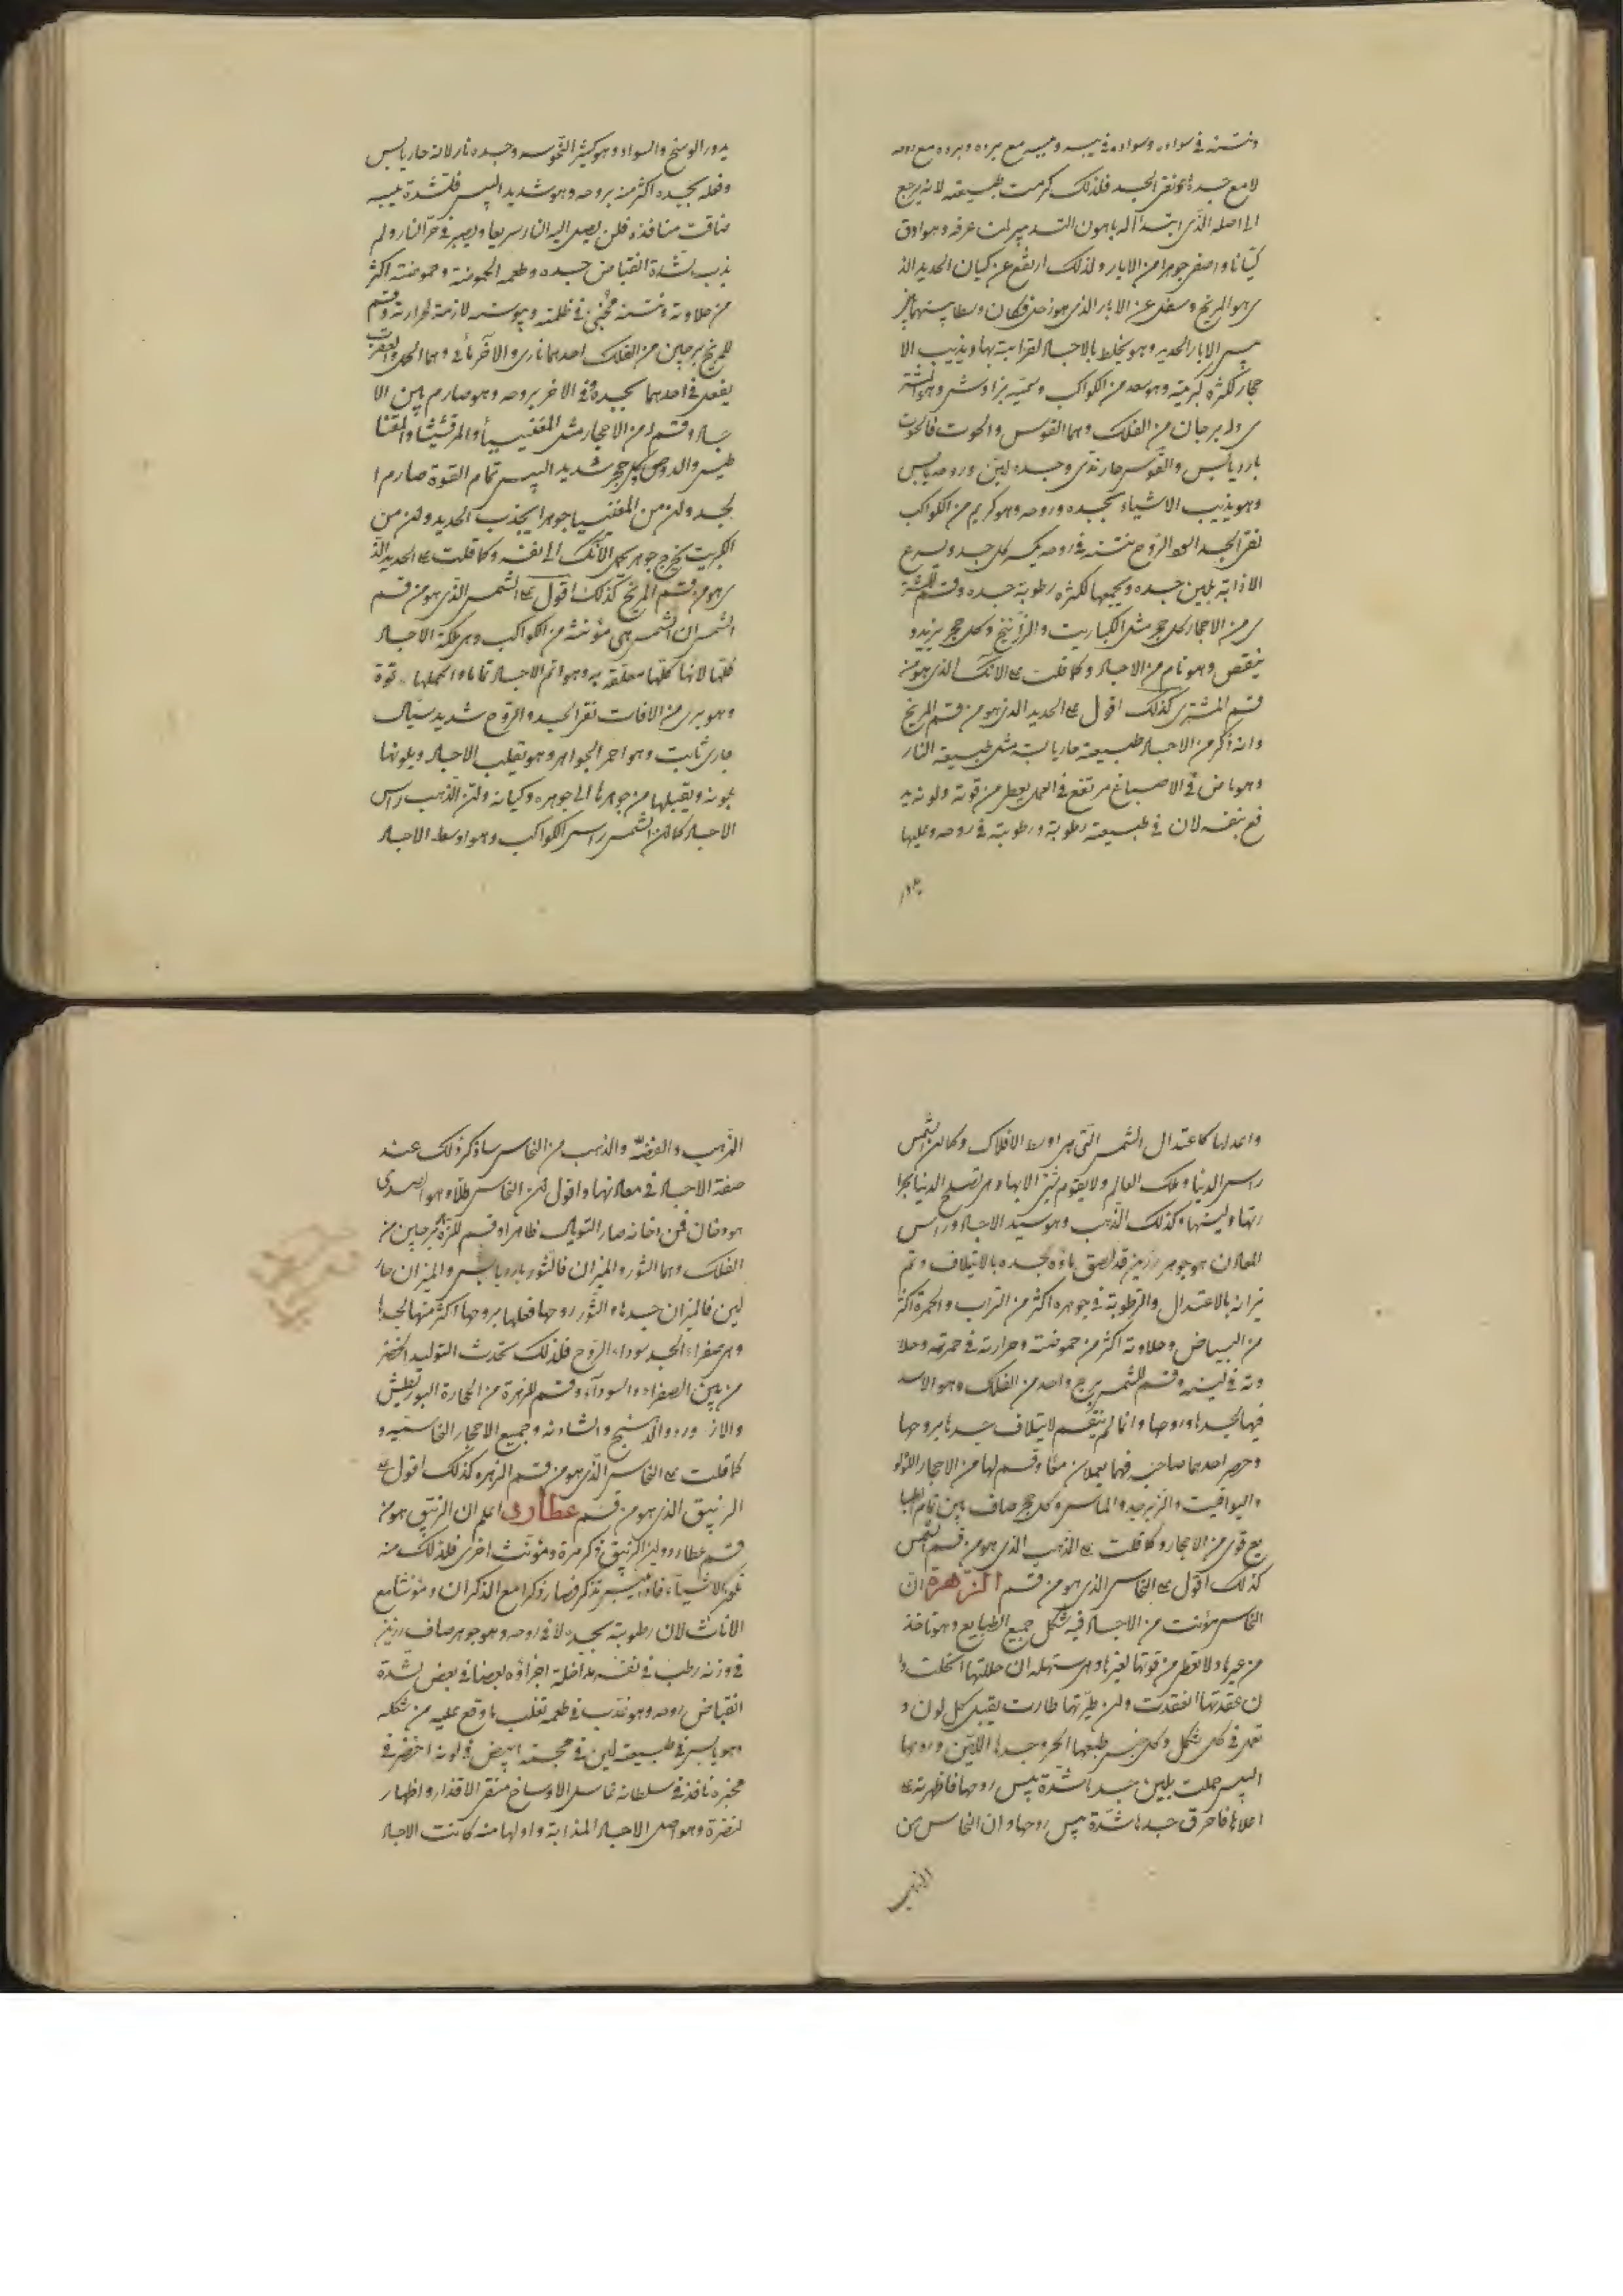 ونتنه في سواده وسواده في يبسه ويبسه مع برده وبرده مع روحه
لا مع جسده نقر الجسد فلذلك كرمت طبيعته لانه يرجع
الى اصله الذي ابتدأ له باهون التدبير ان عرفه وهو ادق
كيانا واصفى جوهرا من الابار ولذلك ارتفع عن كيان الحديد الذ
ى هو المريخ وسفل عن الابار الذي هو زحل فكان وسطا بينهما
يبس الابار الحديد وهو يختلط بالاجساد لقرابته بها ويذيب الا
حجار لكثرة كبريته وهو سعد من الكواكب وهو المشتر
ى وله برجان من الفلك وهما القوس والحوت فالحوت
بارد يابس والقوس حار ندى وجسده لين وروحه يابس
وهو يذيب الاشياء بجسده وروحه وهو كريم من الكواكب
نقر الجسد الروح نتنه في روحه يكسر كل جسد ويسرع
الاذابة بلين جسده ويجمعها لكثرة رطوبة جسده وقسم للمشتر
ى من الاحجار كل حجر مثل الكباريت والزرانيخ وكل حجر يزيد و
ينقص وهو تام من الاجساد وكما قلت على الانك الذي هو من
قسم المشترى كذلك اقول على الحديد الذي هو من قسم المريخ
وانه ذكر من الاجساد طبيعته حار يابسة مثل طبيعة النار
وهو ماض في الاصباغ مرتفع في العمل يعطى من قوته ولونه يد
فع بنفسه لان في طبيعته رطوبة ورطوبته في روحه وعليها
يدور
يدور الوسخ والسواد وهو كثير النحوسة وجسده نار لانه حار يابس
وفعله بجسده اكثر من بروحه وهو شديد اليبس فلشدة يبسه
ضاقت منافذه فلن يصل اليه النار سريعا ويصبر في حر النار ولم
يذب لشدة انقباض جسده وطعمه الحموضة وحموضته اكثر
من حلاوته ونتنه مختبئ في ظلمته ويبوسته لازمة لحرارته وقسم
للمريخ برجين من الفلك احدهما نارى والآخر مائى وهما الحمل والعقرب
يفعل في احدهما بجسده وفى الاخر بروحه وهو صارم بين الا
جساد وقسم له من الاحجار مثل المغنيسيا والمرقشيثا والمغنا
طيس والدوص وكل حجر شديد اليبس تمام القوة صارم ا
لجسد ولن من المغنيسيا جوهرا يجذب الحديد ولن من
الكبريت يخرج جوهر يحمل الأنك الى نفسه وكما قلت على الحديد الذ
ى هو من قسم المريخ كذلك اقول على الشمس الذي هو من قسم
الشمس ان الشمس هي مؤنثة من الكواكب وهي ملكة الاجساد
كلها لانها كلها متعلقة به وهو اتم الاجساد تماما واكملها قوة
وهو برى من الافات نقر الجسد والروح شديد سيال
جارى ثابت وهو احمر الجواهر وهو يقلب الاجساد ويلونها
بلونه ويقبلها من جوهرها الى جوهره وكيانه ولن الذهب رأس
الاجساد كما لن الشمس رأس الكواكب وهو اوسط الاجساد
واعدلها كاعتدال الشمس التي هى اوسط الافلاك وكما لن الشمس
رأس الدنيا وملك العالم ولا يقوم شئ الا بها وهى تصلح الدنيا بحرا
رتها ولينها وكذلك الذهب وهو سيد الاجساد ورأس
المعادن هو جوهر رزين قد لصق ماؤه بجسده بالايتلاف وتم
ميزانه بالاعتدال والرطوبة في جوهره اكثر من التراب والحمرة اكثر
من البياض وحلاوته اكثر من حموضته وحرارته في حمرته وحلا
وته في لينه وقسم للشمس برج واحد من الفلك وهو الاسد
فيها بجسدها وروحها وانما لم ينقسم لايتلاف جسدها بروحها
وحرص احدهما صاحبه فهما يعملان معا وقسم لها من الاحجار اللؤلؤ
واليواقيت والزبرجد والماس وكل حجر صاف بين تمام الطبا
يع قوى من الاحجار وكما قلت على الذهب الذي هو من قسم الشمس
كذلك اقول على النحاس الذي هو من قسم الزهرة ان
النحاس مؤنث من الاجساد فيه شكل جميع الطبايع وهو تاخذ
من غيرها ولا تعطى من قوتها لغيرها وهى مستهلة ان حللتها انحلت وا
ن عقدتها انعقدت ولن طيرتها طارت يقبل كل لون و
تعمل في كل شكل وكل جنس طبعها الحر وجسدها اللين وروحها
اليبس حملت بلين جسدها شدة يبس روحها فاظهرته على
اعلاها فاحرق جسدها شدة يبس روحها وان النحاس من
الذهب
الذهب والفضة والذهب من النحاس ساذكر ذلك عند
صفة الاجساد في معادنها واقول لن النحاس طلاوه والصدى
هو دخان فمن دخانه صار التوبال ظاهرا وقسم للزهرة برجين من
الفلك وهما الثور والميزان فالثور بارد يابس والميزان حار
لين فالميزان جسدها والثور روحها فعلها بروحها اكثر منها بجسدها
وهى صفراء الجسد سوداء الروح فلذلك تحدث التوليد الخضر
من بين الصفراء والسوداء وقسم للزهرة من الحجارة البورنطيش
والازورد والدهنج والشادنه وجميع الاحجار النحاسية و
كما قلت على النحاس الذي هو من قسم الزهره كذلك اقول على
الزيبق الذي هو من قسم عطارد اعلم ان الزيبق هو من
قسم عطارد ولن الزيبق ذكر مرة ومؤنث اخرى فلذلك منه
تذكر فصار ذكرا مع الذكران ومؤنثا مع
الاناث لان رطوبته بجسده لا في روحه وهو جوهر صاف رزين
في وزنه رطب في نفسه مداخلة اجزاؤه بعضا في بعض لشدة
انقباض روحه وهو عذب في طعمه تغلب ما وقع عليه من شكله
وهو يابس في طبيعته لين في مجسته ابيض في لونه اخضر في
مخبره نافذ في سلطانه غاسل الاوساخ منقى الاقذار واظهار
لنضرة وهو اصل الاجساد المذابة واولها منه كانت الاجساد